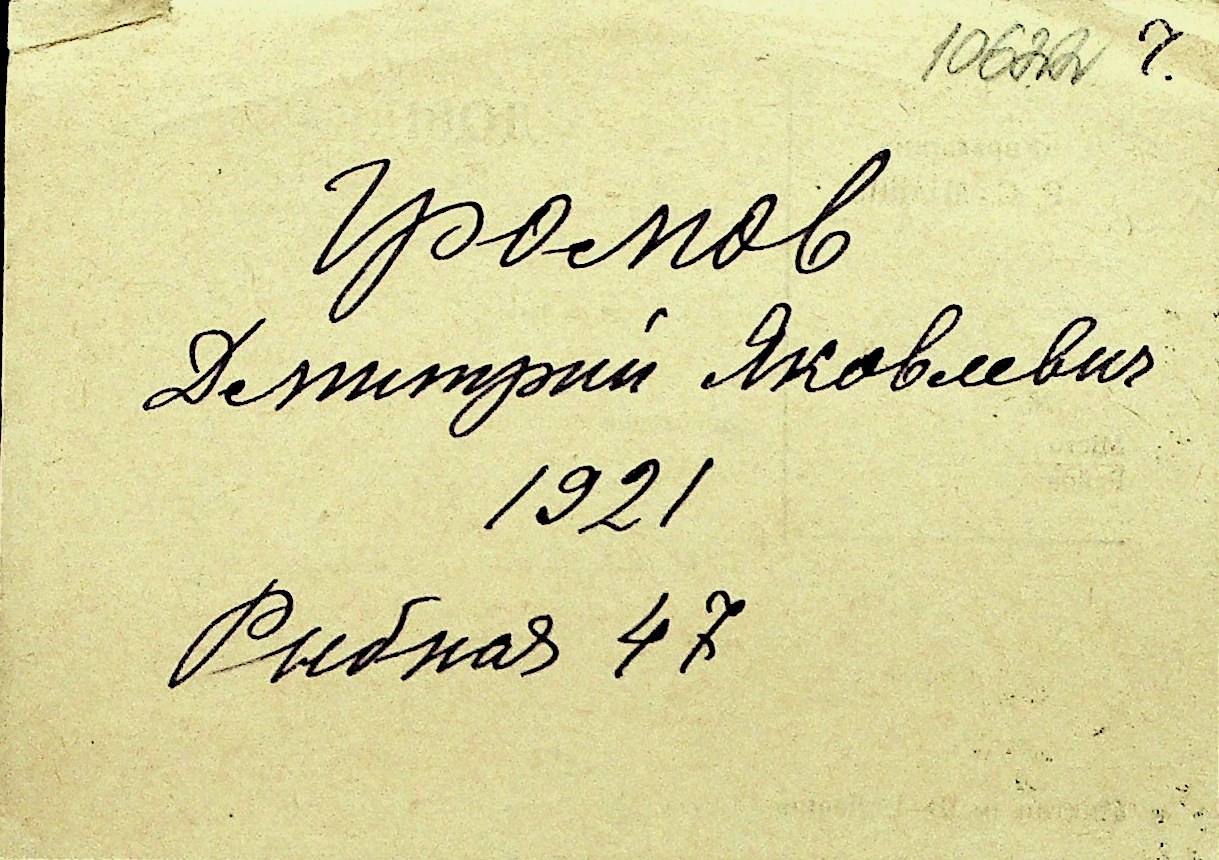 10622 7.
Громов
Дмитрий Яковлевич
1921
Рыбная 47